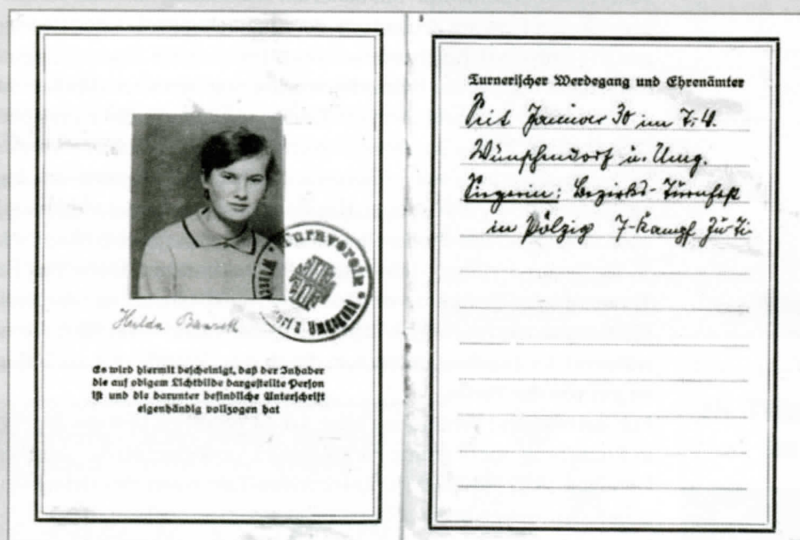 Hilda
Turnverein
Wünschendorf u. Umgebung
Es wird hiermit bescheinigt, daß der Inhaber
die auf obigem Lichtbilde dargestellte Person
ist und die darunter befindliche Unterschrift
eigenhändig vollzogen hat
Turnerischer Werdegang und Ehrenämter
Seit Januar 30 im T. V.
Wünschendorf u. Umg.
Siegerin: Bezirks-Turnfest
in Pölzig 7-Kampf